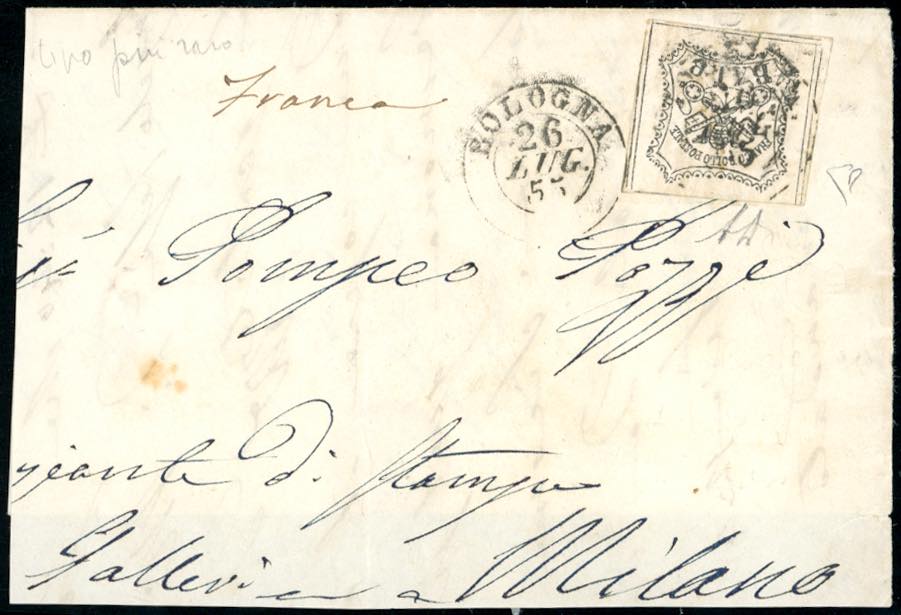 tipo piu raro
Franca
BOLOGNA
26
LUG.
55
8 BAJ
FRANCO BOLLO POSTALE
Pompeo Pozzi
di Stampe
a Milano